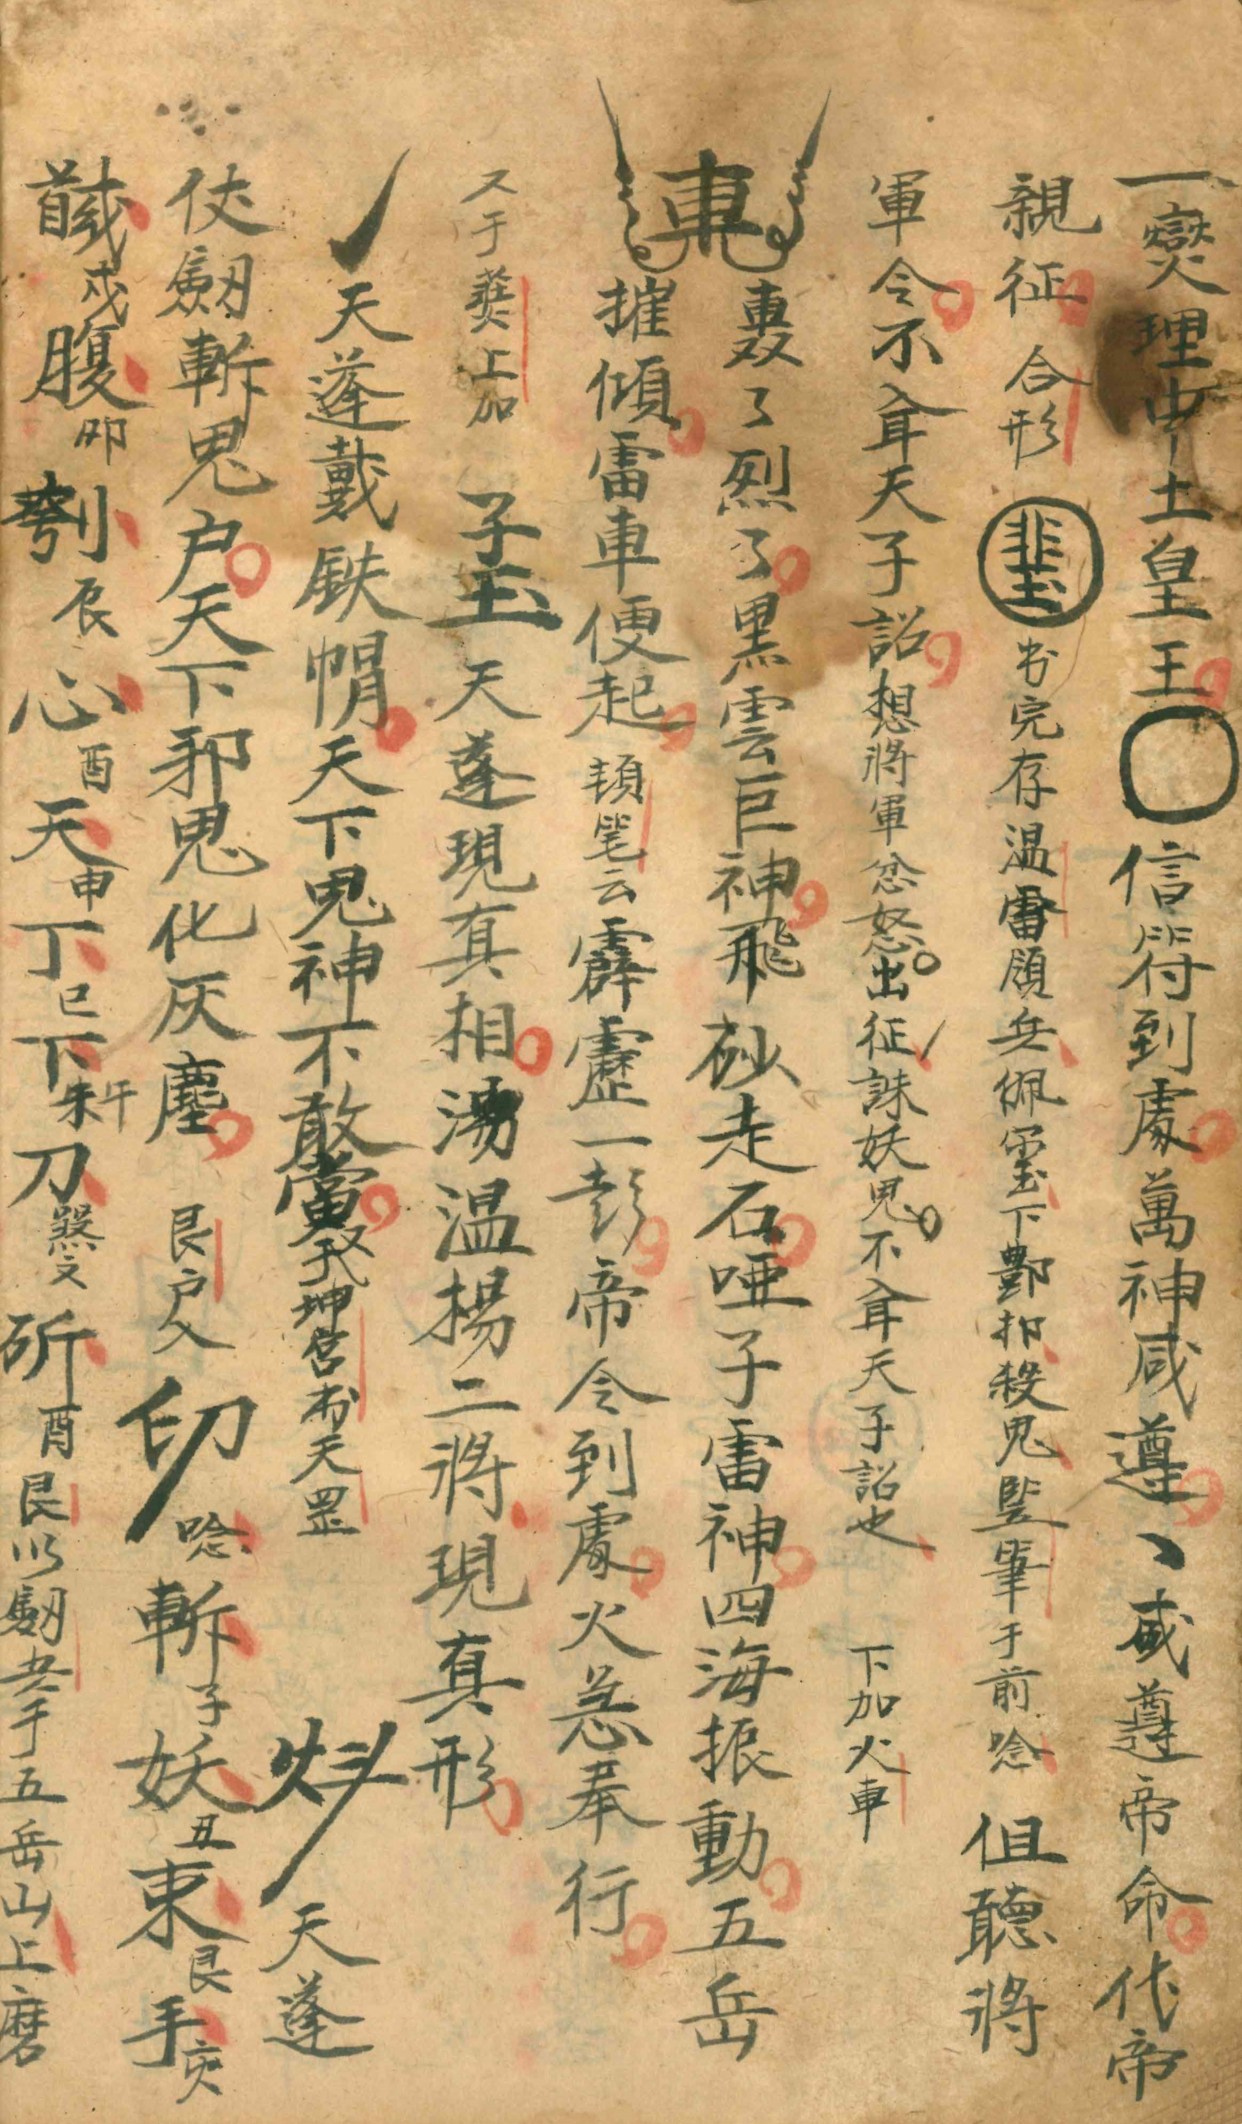 一爕理中土皇王信符到處萬神咸遵、咸遵帝命代帝
親征合形书完存温雷領兵佩下酆都殺鬼竪筆于前唸但聽將
軍令不聞天子詔想將軍忿怒出征誅妖鬼不聞天子詔也下加火車
轟了烈了黑雲巨神飛砂走石啞子雷神四海振動五岳
車摧傾雷車便起頓笔云霹靂一声帝令到處火急奉行
又于上加天蓬現真相湯温楊二將現真形
天蓬戴鉄帽天下鬼神不敢當又于坤宫书天罡天蓬
仗劔斬鬼户天下邪鬼化灰塵艮户入印唸斬子妖丑束艮手亥
馘戌腹卯刳辰心酉天申丁巳下未午刀煞文斫酉艮以劔书于五岳山上磨